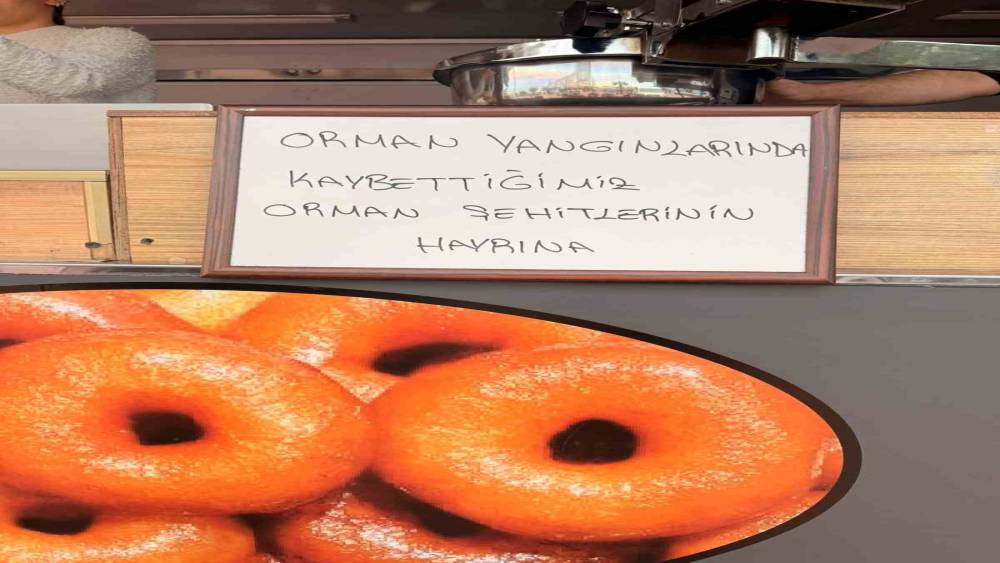 ORMAN YANGINLARINDA
KAYBETTİĞİMİZ
ORMAN ŞEHİTLERİNİN
HAYRINA